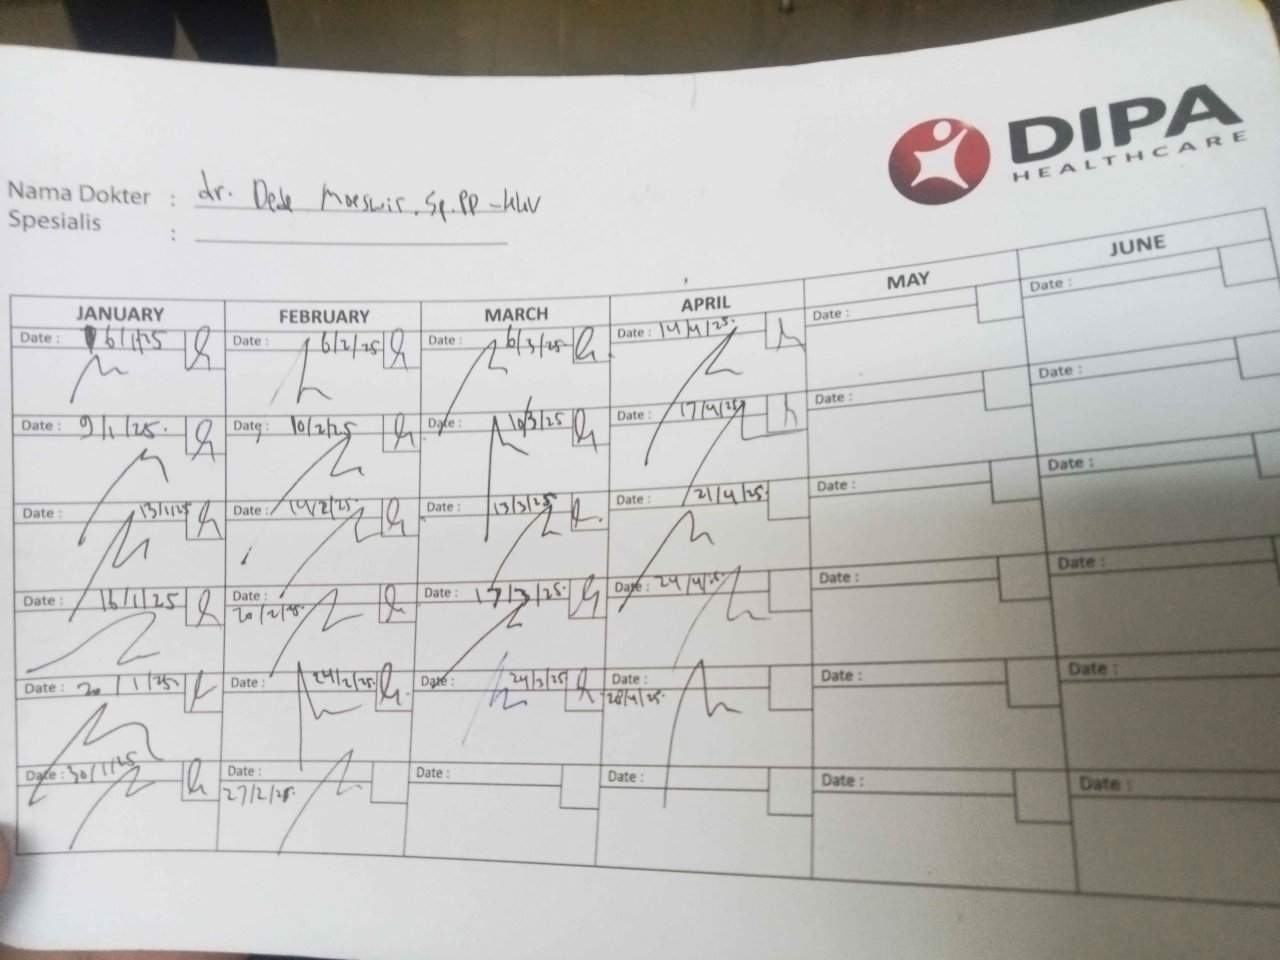 DIPA
HEALTHCARE
Nama Dokter : dr. Dede Moeswir. Sp.PD-KKV
Spesialis :
JANUARY FEBRUARY MARCH APRIL MAY JUNE
Date : 6/1/25 Date : 6/2/25 Date : 6/3/25 Date : 14/4/25. Date : Date :
Date : 9/1/25. Date : 10/2/25 Date : 10/3/25 Date : 17/4/25 Date : Date :
Date : 13/1/25 Date : 14/2/25. Date : 13/3/25 Date : 21/4/25. Date : Date :
Date : 16/1/25 Date : 20/2/25. Date : 17/3/25. Date : 24/4/25. Date : Date :
Date : 20/1/25. Date : 24/2/25. Date : 24/3/25 Date : 28/4/25. Date : Date :
Date : 30/1/25 Date : 27/2/25. Date : Date : Date : Date :